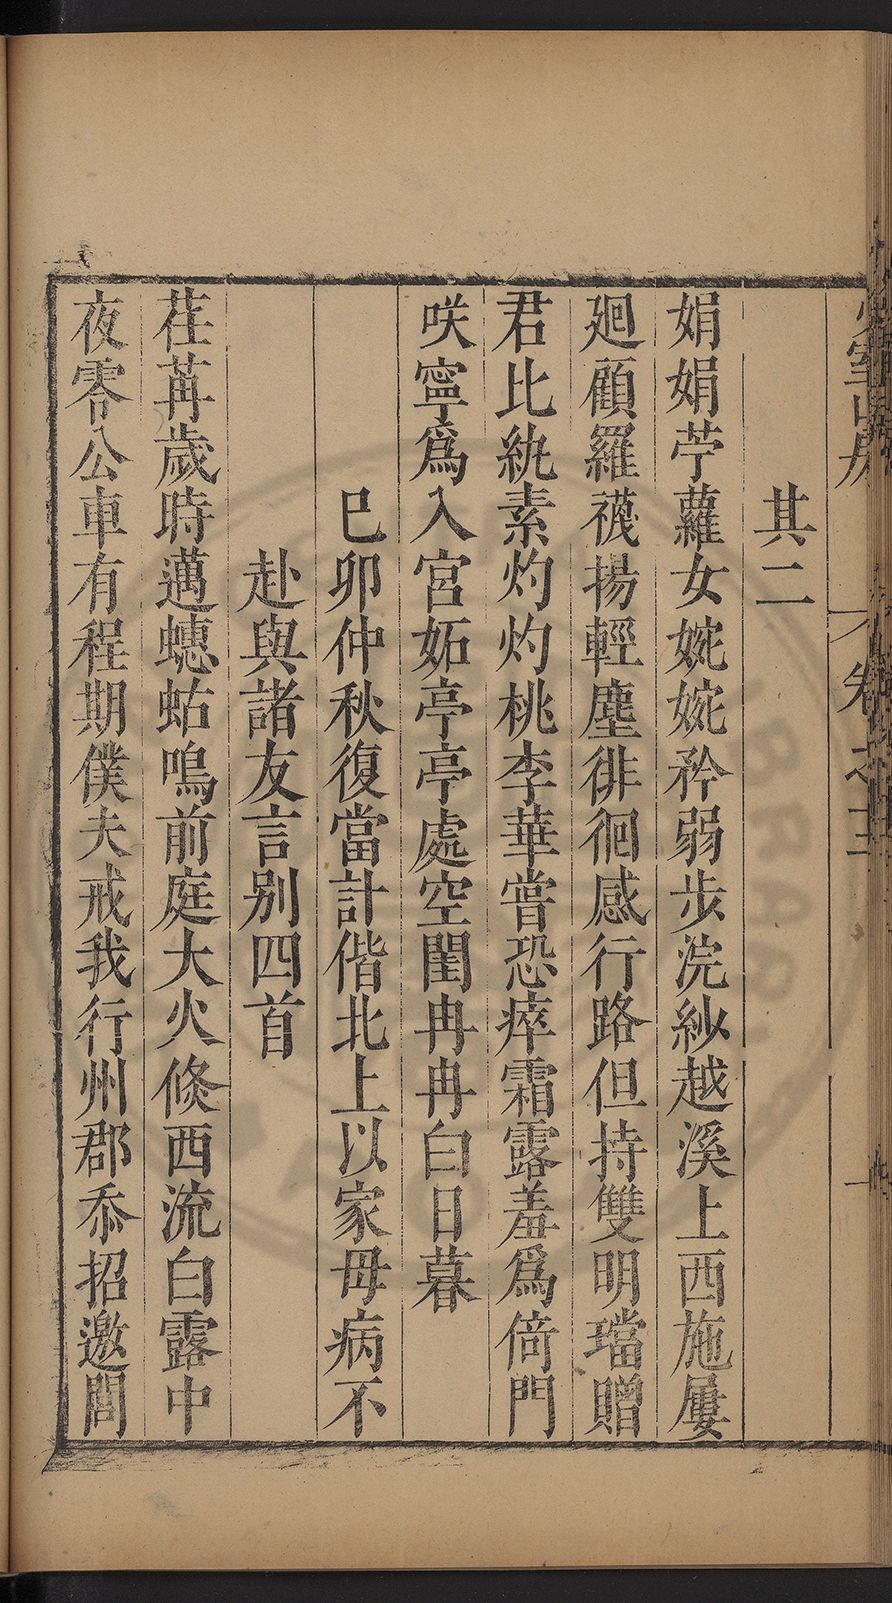 少室山房
卷之十三
一
其二
娟娟苧蘿女婉婉矜弱步浣紗越溪上西施屢
廻顧羅襪揚輕塵徘徊感行路但持雙明璫贈
君比紈素灼灼桃李華嘗恐瘁霜露羞爲倚門
咲寧爲入宮妬亭亭處空閨冉冉白日暮
巳卯仲秋復當計偕北上以家毋病不
赴與諸友言别四首
荏苒歲時邁蟪蛄鳴前庭大火倏西流白露中
夜零公車有程期僕夫戒我行州郡忝招邀閭